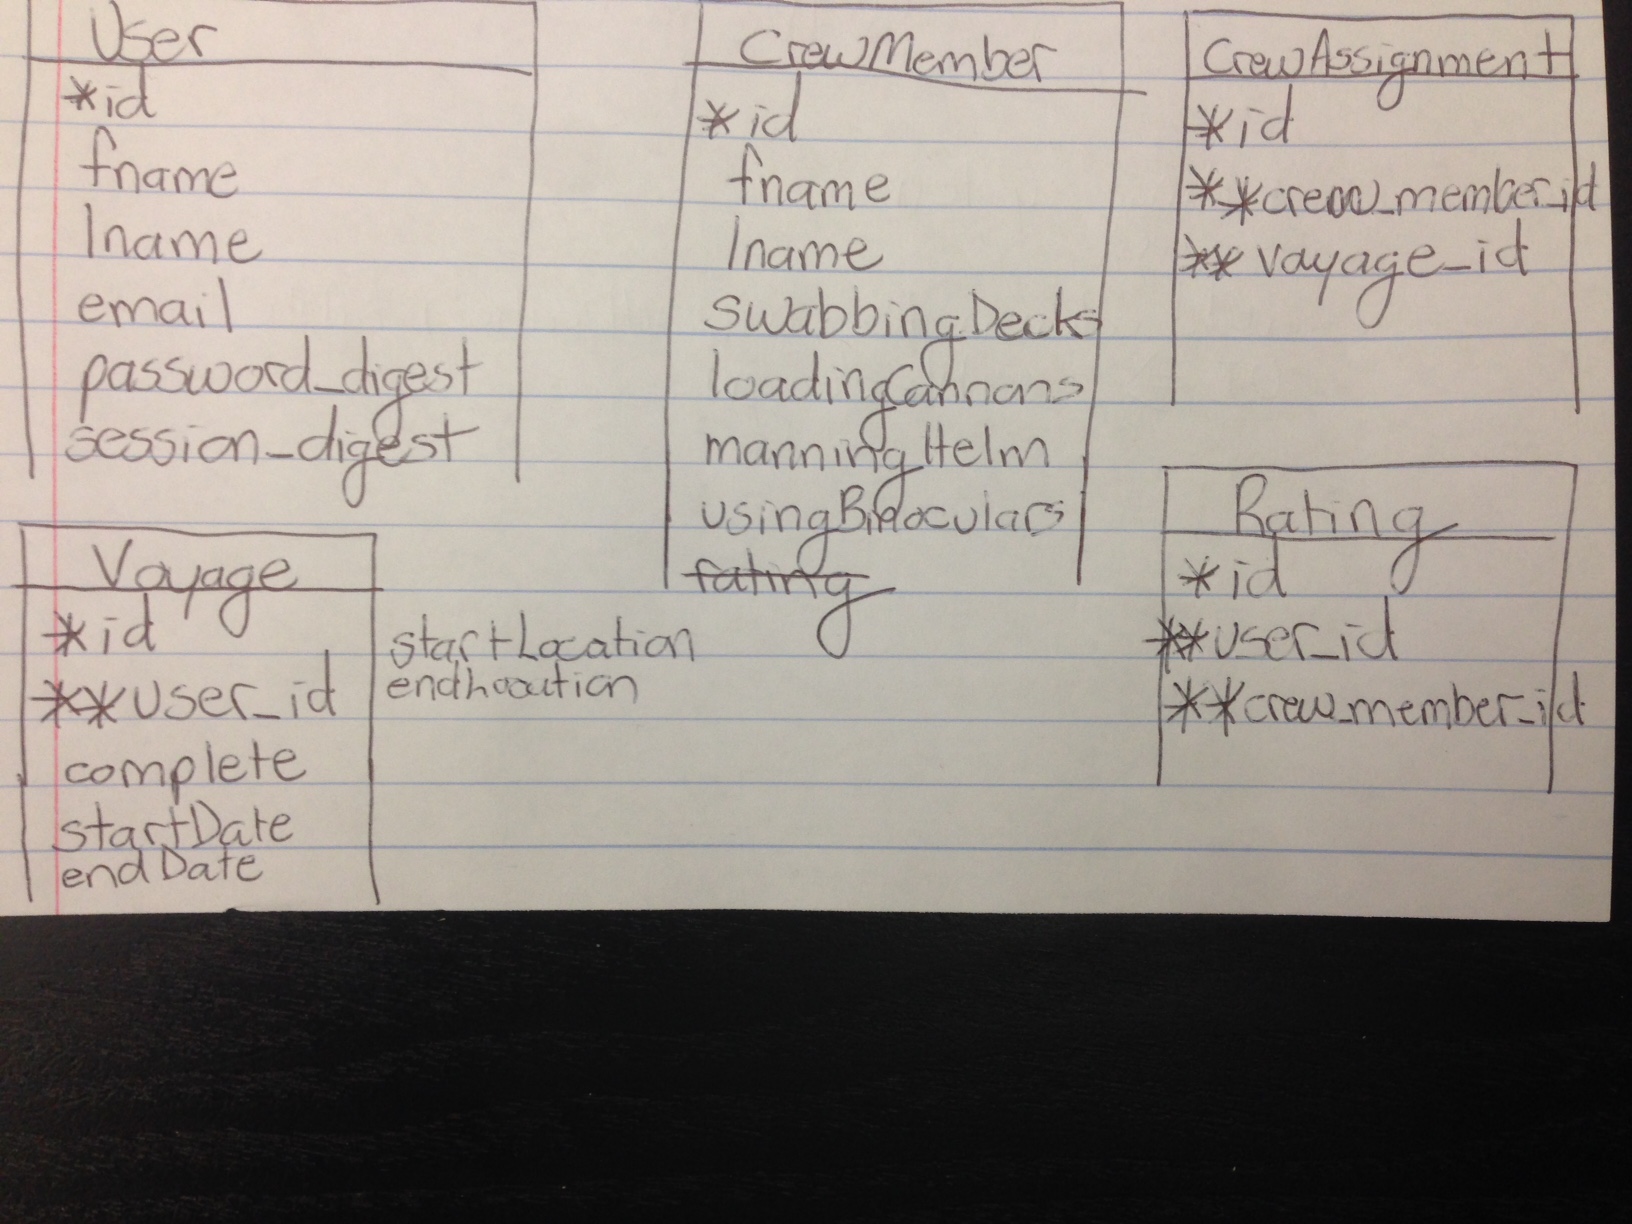 User
*id
fname
lname
email
password_digest
session_digest
CrewMember
*id
fname
lname
swabbingDecks
loadingCannons
manningHelm
usingBinoculars
rating
CrewAssignment
*id
**crew_member_id
**voyage_id
Voyage
*id
**user_id
complete
startDate
endDate
startLocation
endLocation
Rating
*id
**user_id
**crew_member_id